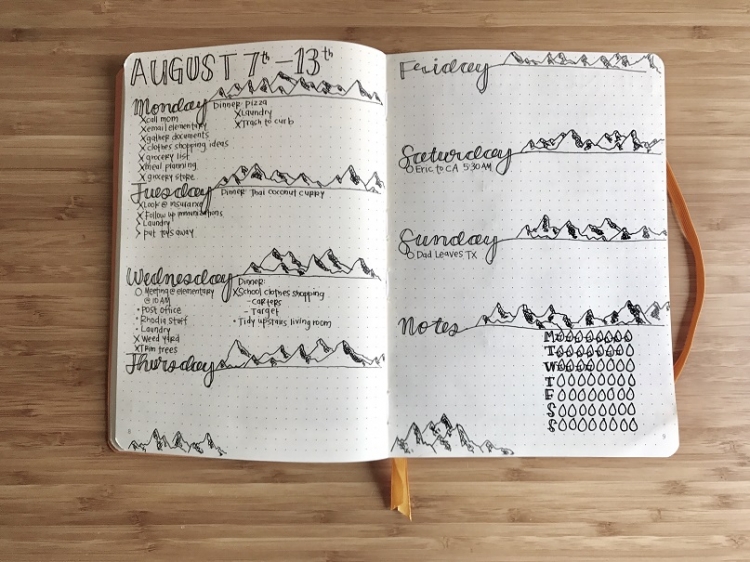 AUGUST 7th - 13th
Monday
X call mom
X email elementary
X gather documents
X clothes shopping ideas
X grocery list
X meal planning
X grocery store
Dinner: pizza
X Laundry
X Trash to curb
Tuesday
X Look @ insurance
X Follow up immunizations
> Laundry
> put toys away
Dinner: Thai coconut curry
Wednesday
O Meeting @ elementary
@ 10 AM
• Post office
• Rhodia staff
• Laundry
X Weed yard
X Trim trees
Dinner:
X School clothes shopping
- Carters
- Target
• Tidy upstairs living room
Thursday
8
Friday
Saturday
O Eric to CA 5:30 AM
Sunday
O Dad Leaves TX
Notes
M
T
W
T
F
S
S
9